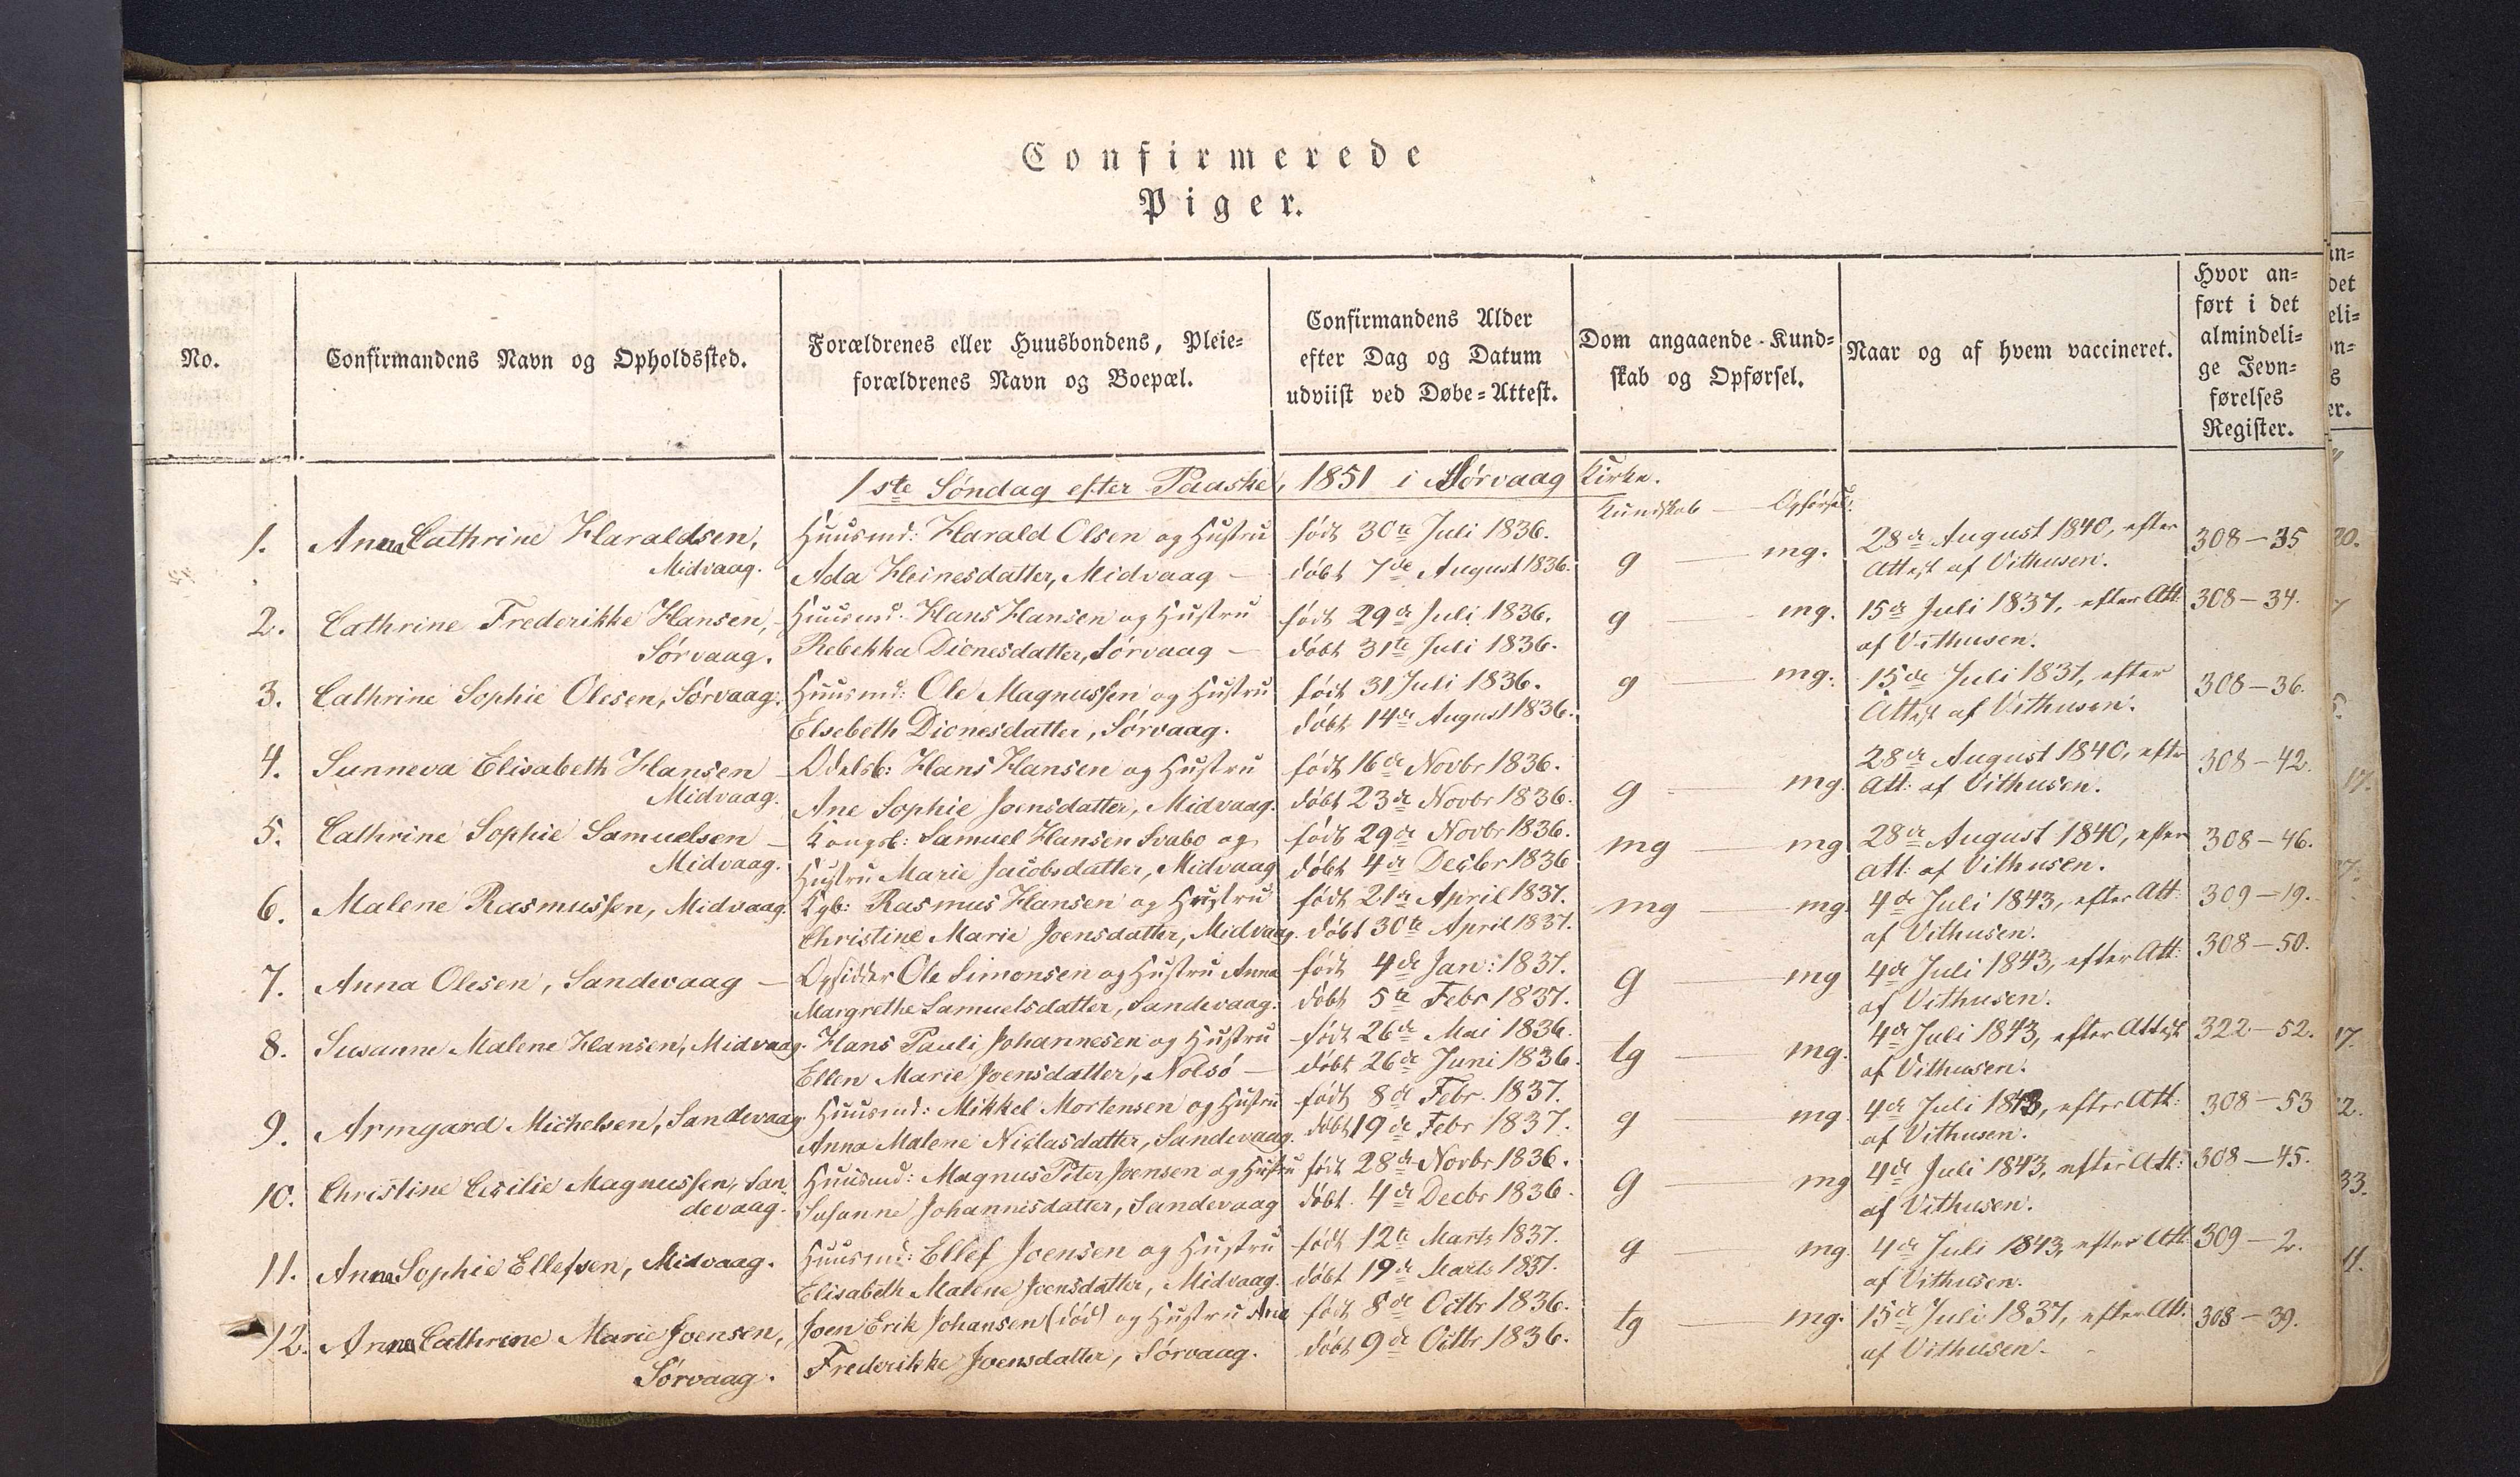 Confirmerede
Piger.
No.
Confirmandens Navn og Opholdssted.
Forældrenes eller Huusbondens, Pleie-
forældrenes Navn og Boepæl.
Confirmandens Alder
efter Dag og Datum
udviist ved Døbe-Attest.
Dom angaaende Kund-
skab og Opførsel.
Naar og af hvem vaccineret.
Hvor an-
ført i det
almindeli-
ge Jevn-
førelses
Register.
1ste Søndag efter Paaske, 1851 i Sørvaag Kirke.
Kundskab — Opførsel.
1.
Anna Cathrine Haraldsen,
Midvaag.
Huusmd: Harald Olsen og Hustru
Ada Heinesdatter, Midvaag —
født 30te Juli 1836.
døbt 7de August 1836.
g — mg.
28de August 1840, efter
Attest af Vithusen.
308-35
2.
Cathrine Frederikke Hansen,
Sørvaag.
Huusmd. Hans Hansen og Hustru
Rebekka Dionesdatter, Sørvaag —
født 29de Juli 1836.
døbt 31te Juli 1836.
g — mg.
15de Juli 1837, efter Att:
af Vithusen.
308-34.
3.
Cathrine Sophie Olesen, Sørvaag.
Huusmd: Ole Magnussen og Hustru
Elsebeth Dionesdatter, Sørvaag.
født 31 Juli 1836.
døbt 14de August 1836.
g — mg.
15de Juli 1837, efter
Attest af Vithusen.
308-36.
4.
Sunneva Elisabeth Hansen —
Midvaag.
Odelsb: Hans Hansen og Hustru
Ane Sophie Joensdatter, Midvaag.
født 16de Novbr 1836.
døbt 23de Novbr 1836.
g — mg.
28de August 1840, efter
Att: af Vithusen.
308-42.
5.
Cathrine Sophie Samuelsen —
Midvaag.
Kongsb: Samuel Hansen Svabo og
Hustru Marie Jacobsdatter, Midvaag
født 29de Novbr 1836.
døbt 4de Decbr 1836
mg — mg
28de August 1840, efter
att: af Vithusen.
308-46.
6.
Malene Rasmussen, Midvaag.
Kgb: Rasmus Hansen og Hustru
Christine Marie Joensdatter, Midvaag.
født 21de April 1837.
døbt 30te April 1837.
mg — mg.
4de Juli 1843, efter Att:
af Vithusen.
309-19.
7.
Anna Olesen, Sandevaag —
Opsidder Ole Simonsen og Hustru Anna
Margrethe Samuelsdatter, Sandevaag.
født 4de Jan: 1837.
døbt 5te Febr 1837.
g — mg
4de Juli 1843, efter Att:
af Vithusen.
308-50.
8.
Susanne Malene Hansen, Midvaag.
Hans Pauli Johannesen og Hustru
Ellen Marie Joensdatter, Nolsø —
født 26de Mai 1836.
døbt 26de Juni 1836.
tg — mg.
4de Juli 1843, efter Attest
af Vithusen.
322-52.
9.
Armgard Michelsen, Sandevaag.
Huusmd: Mikkel Mortensen og Hustru
Anna Malene Niclasdatter, Sandevaag.
født 8de Febr. 1837.
døbt 19de Febr 1837.
g — mg.
4de Juli 1843, efter Att:
af Vithusen.
308-53
10.
Christine Cecilie Magnussen, San-
devaag.
Huusmd: Magnus Peter Joensen og Hustru
Susanne Johannisdatter, Sandevaag
født 28de Novbr 1836.
døbt 4de Decbr 1836.
g — mg
4de Juli 1843, efter Att:
af Vithusen.
308-45.
11.
Anna Sophie Ellefsen, Midvaag.
Huusmd: Ellef Joensen og Hustru
Elisabeth Malene Joensdatter, Midvaag.
født 12te Marts 1837.
døbt 19de Marts 1837.
g — mg.
4de Juli 1843, efter Att:
af Vithusen.
309-2.
12.
Anna Cathrine Marie Joensen,
Sørvaag.
Joen Erik Johansen (død) og Hustru Ane
Frederikke Joensdatter, Sørvaag.
født 8de Octbr 1836.
døbt 9de Octbr 1836.
tg — mg.
15de Juli 1837, efter Att:
af Vithusen.
308-39.